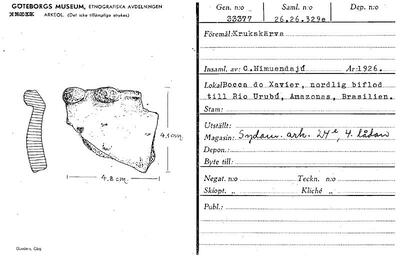 GÖTEBORGS MUSEUM, ETNOGRAFISKA AVDELNINGEN
ARKEOL. (Det icke tillämpliga strykes)
4.1cm
4.8 cm
Gen. n:o Saml. n:o Dep. n:o
33377 26.26.329a
Föremål: Krukskärva
Insaml. av: C.Nimuendajú År: 1926.
Lokal Bocca do Xavier, nordlig biflod
till Rio Urubú, Amazonas, Brasilien.
Stam:
Utställt:
Magasin: Sydam. ark. 24e, 4. lådan
Depon.:
Byte till:
Negat. n:o Teckn. n:o
Skiopt. „ Kliché „
Publ.: